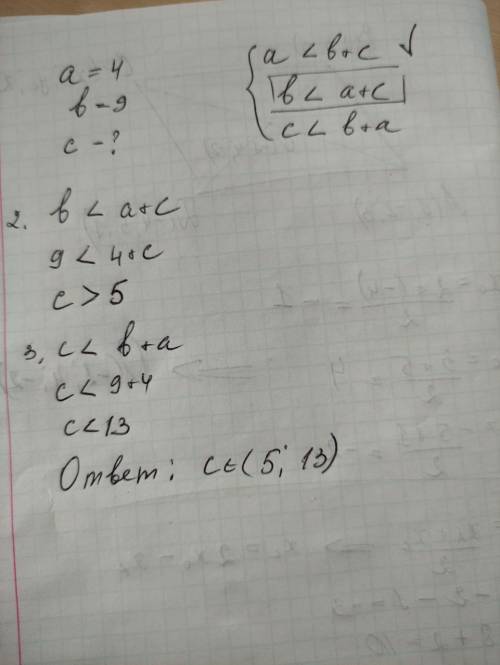 a = 4
b - 9
c - ?
a < b + c ✓
b < a + c
c < b + a
2. b < a + c
9 < 4 + c
c > 5
3, c < b + a
c < 9 + 4
c < 13
Ответ: c ∈ (5; 13)